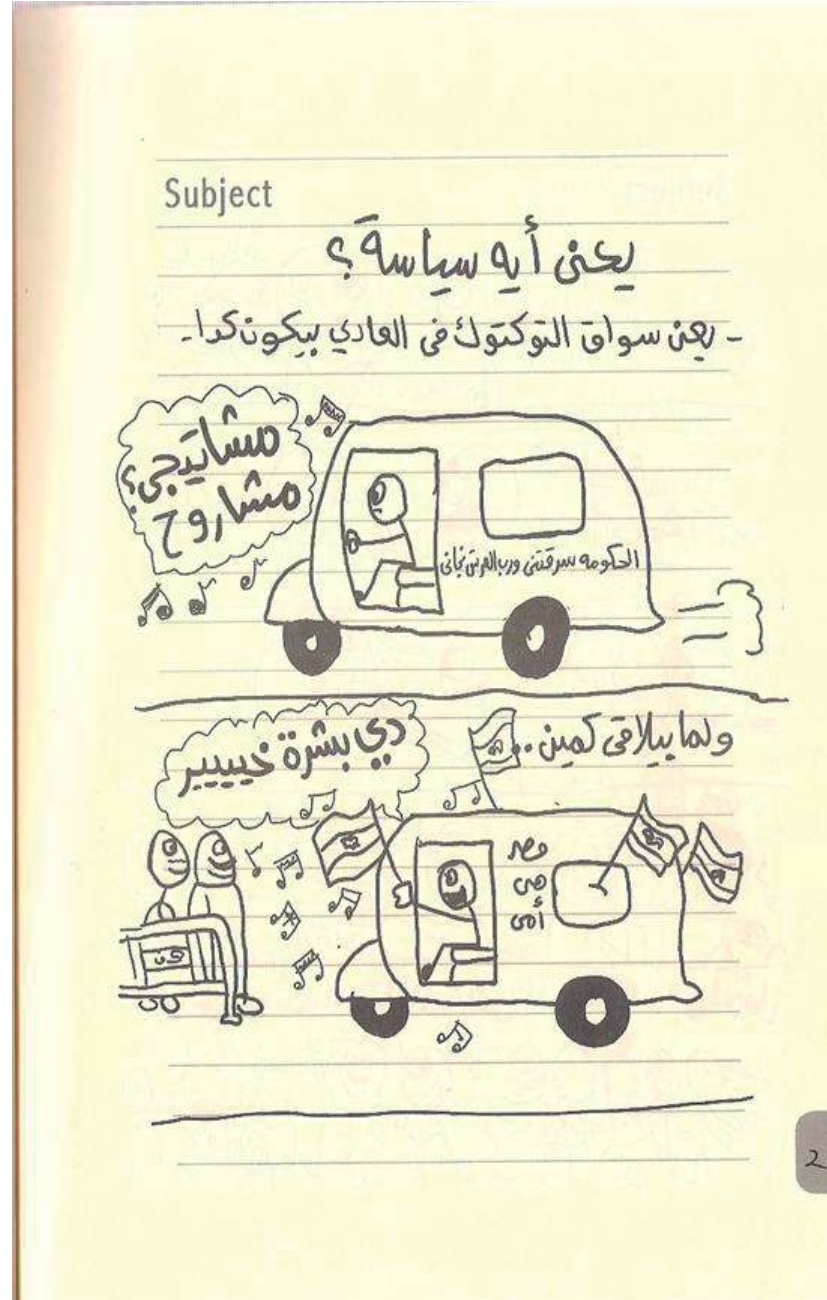 Subject
يعنى أيه سياسة؟
- يعن سواق التوكتوك فى العادي بيكون كدا -
مشاتيجى؟
مشاروح
الحكومه سرقتنى ورب العرش نجانى
ولما بيلاقى كمين ..
دي بشرة خييير
مصر
هى
أمى
2